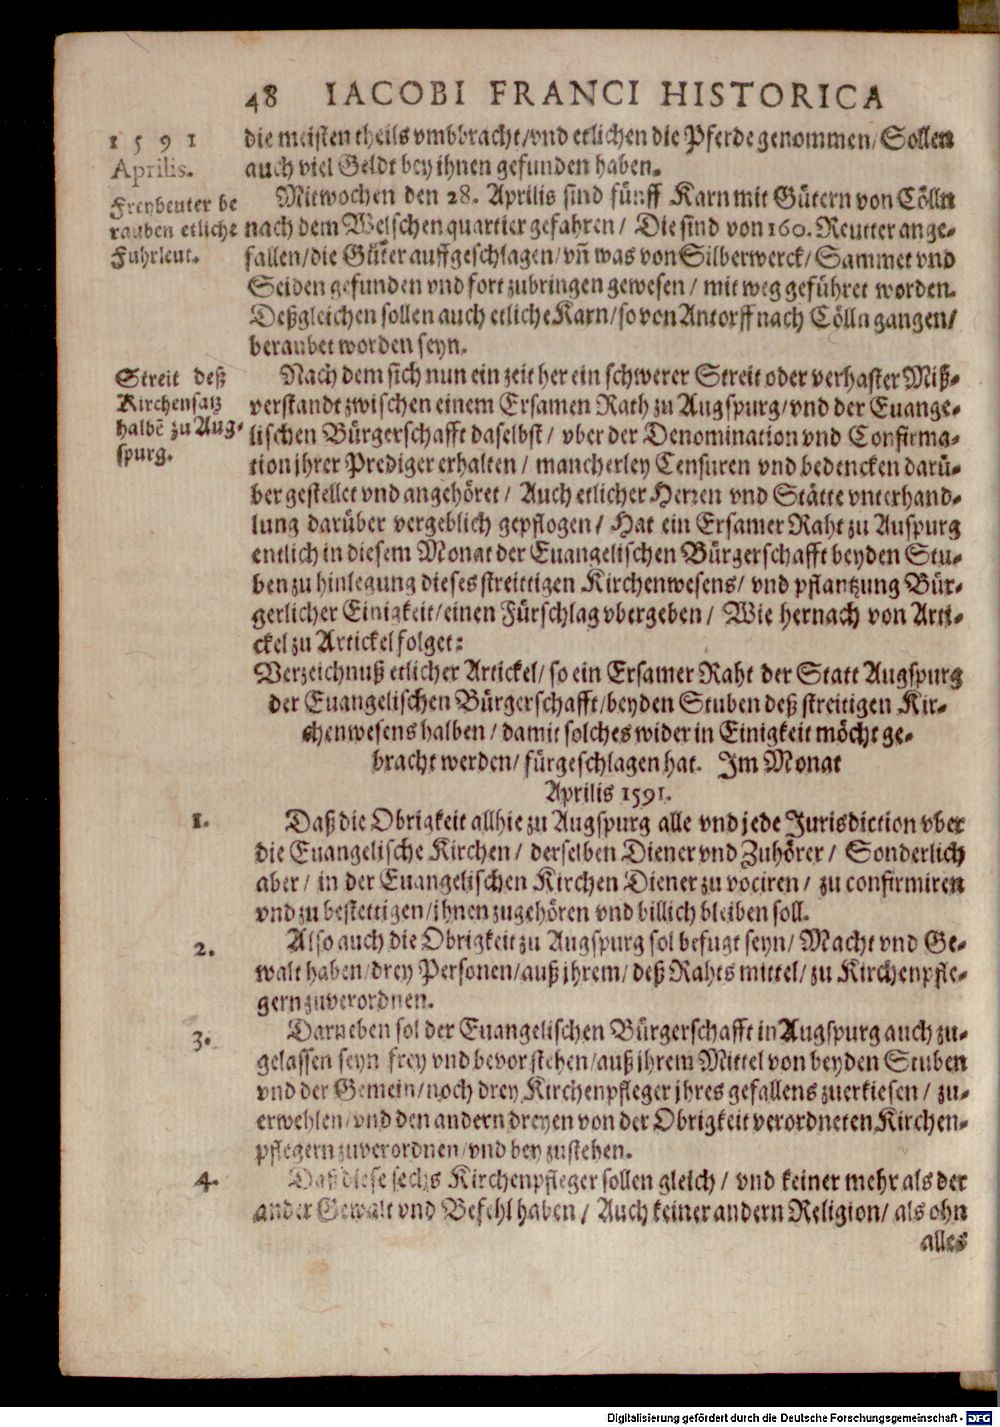 48 IACOBI FRANCI HISTORICA
1591
Aprilis.
die meisten theils vmbbracht/vnd etlichen die Pferde genommen/ Sollen
auch viel Geldt bey ihnen gefunden haben.
Freybeuter be
rauben etliche
Fuhrleut.
Mitwochen den 28. Aprilis sind fünff Karn mit Gütern von Cölln
nach dem Welschen quartier gefahren/ Die sind von 160. Reutter ange-
fallen/die Güter auffgeschlagen/vñ was von Silberwerck/ Sammet vnd
Seiden gefunden vnd fort zubringen gewesen/ mit weg geführet worden.
Deßgleichen sollen auch etliche Karn/so von Antorff nach Cölln gangen/
beraubet worden seyn.
Streit deß
Kirchensatz
halbẽ zu Aug-
spurg.
Nach dem sich nun ein zeit her ein schwerer Streit oder verhaster Miß-
verstandt zwischen einem Ersamen Rath zu Augspurg/vnd der Euange-
lischen Bürgerschafft daselbst/ vber der Denomination vnd Confirma-
tion jhrer Prediger erhalten/ mancherley Censuren vnd bedencken darü-
ber gestellet vnd angehöret/ Auch etlicher Herren vnd Stätte vnterhand-
lung darüber vergeblich gepflogen/ Hat ein Ersamer Raht zu Auspurg
entlich in diesem Monat der Euangelischen Bürgerschafft beyden Stu-
ben zu hinlegung dieses streittigen Kirchenwesens/ vnd pflantzung Bür-
gerlicher Einigkeit/einen Fürschlag vbergeben/ Wie hernach von Arti-
ckel zu Artickel folget:
Verzeichnuß etlicher Artickel/ so ein Ersamer Raht der Statt Augspurg
der Euangelischen Bürgerschafft/beyden Stuben deß streitigen Kir-
chenwesens halben/ damit solches wider in Einigkeit möcht ge-
bracht werden/ fürgeschlagen hat. Im Monat
Aprilis 1591.
1. Daß die Obrigkeit allhie zu Augspurg alle vnd jede Jurisdiction vber
die Euangelische Kirchen/ derselben Diener vnd Zuhörer/ Sonderlich
aber/ in der Euangelischen Kirchen Diener zu vociren/ zu confirmiren
vnd zu bestettigen/jhnen zugehören vnd billich bleiben soll.
2. Also auch die Obrigkeit zu Augspurg sol befugt seyn/ Macht vnd Ge-
walt haben/drey Personen/auß jhrem/ deß Rahts mittel/ zu Kirchenpfle-
gern zuverordnen.
3. Darneben sol der Euangelischen Bürgerschafft in Augspurg auch zu-
gelassen seyn frey vnd bevor stehen/auß jhrem Mittel von beyden Stuben
vnd der Gemein/noch drey Kirchenpfleger jhres gefallens zuerkiesen/ zu-
erwehlen/vnd den andern dreyen von der Obrigkeit verordneten Kirchen-
pflegern zuverordnen/vnd bey zustehen.
4. Daß diese sechs Kirchenpfleger sollen gleich/ vnd keiner mehr als der
ander Gewalt vnd Befehl haben/ Auch keiner andern Religion/ als ohn
alles
Digitalisierung gefördert durch die Deutsche Forschungsgemeinschaft - DFG